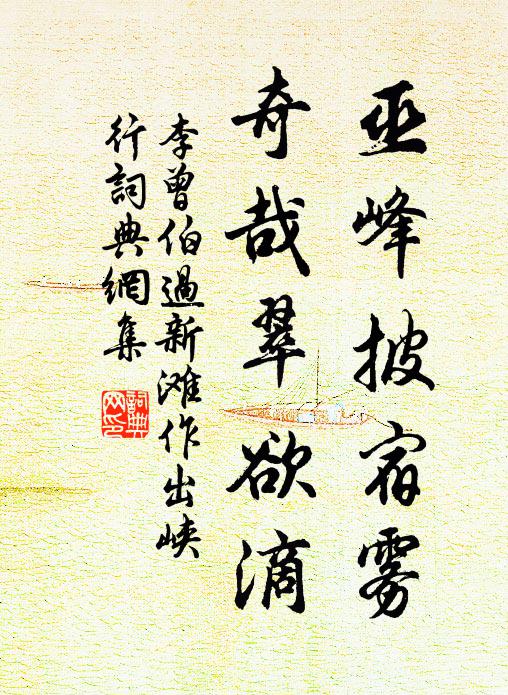 巫峰披宿雾
奇哉翠欲滴
李曾伯過新滩作出峡
行詞典網集
詞典
网印